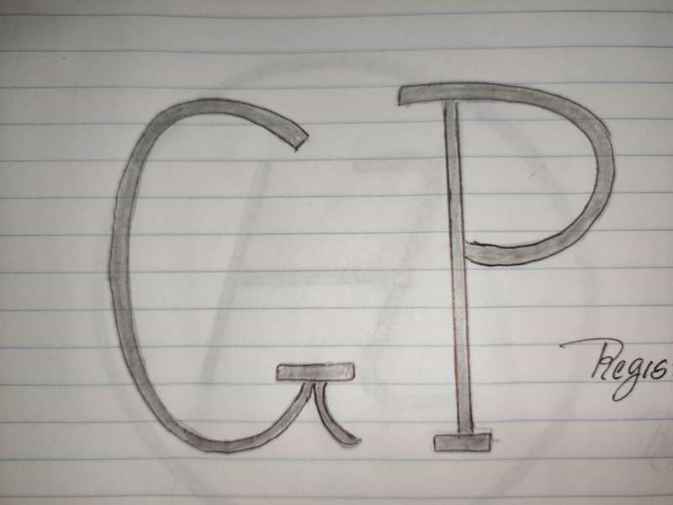 GP
Regis